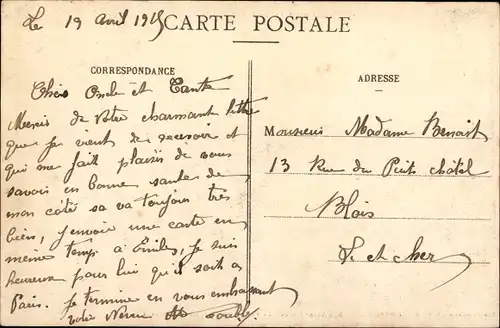 Le 19 avril 1915
CARTE POSTALE
CORRESPONDANCE
ADRESSE
Chère Oncle et Tante
Mercis de votre charmant lettre
que je vient de recevoir et
qui me fait plaisir de vous
savoir en bonne santer de
mon côté sa va toujour très
bien, j'envoie une carte en
même temp à Emile, je suis
heureux pour lui qu'il soit a
Paris. je termine en vous embrassant
votre Neveu
Monsieur Madame Benoist
13 Rue du Puits châtel
Blois
L. et cher